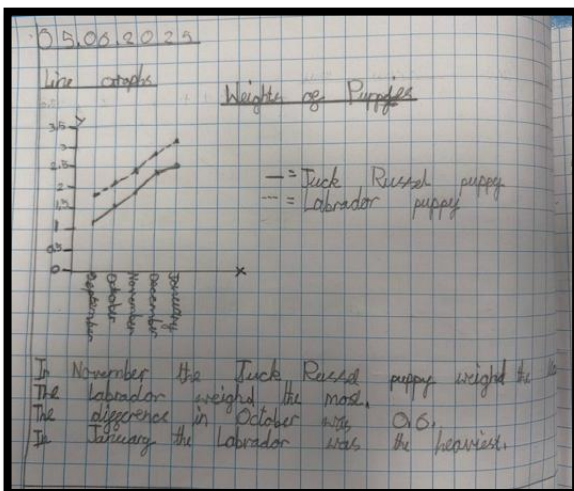 05.06.2025
Line Graphs
Weights of Puppies
Y
3.5
3
2.5
2
1.5
1
0.5
0
X
September
October
November
December
January
— = Jack Russel puppy
--- = Labrador puppy
In November the Jack Russel puppy weighd the
The Labrador weighd the most.
The difference in October was 0.6.
In January the Labrador was the heaviest.